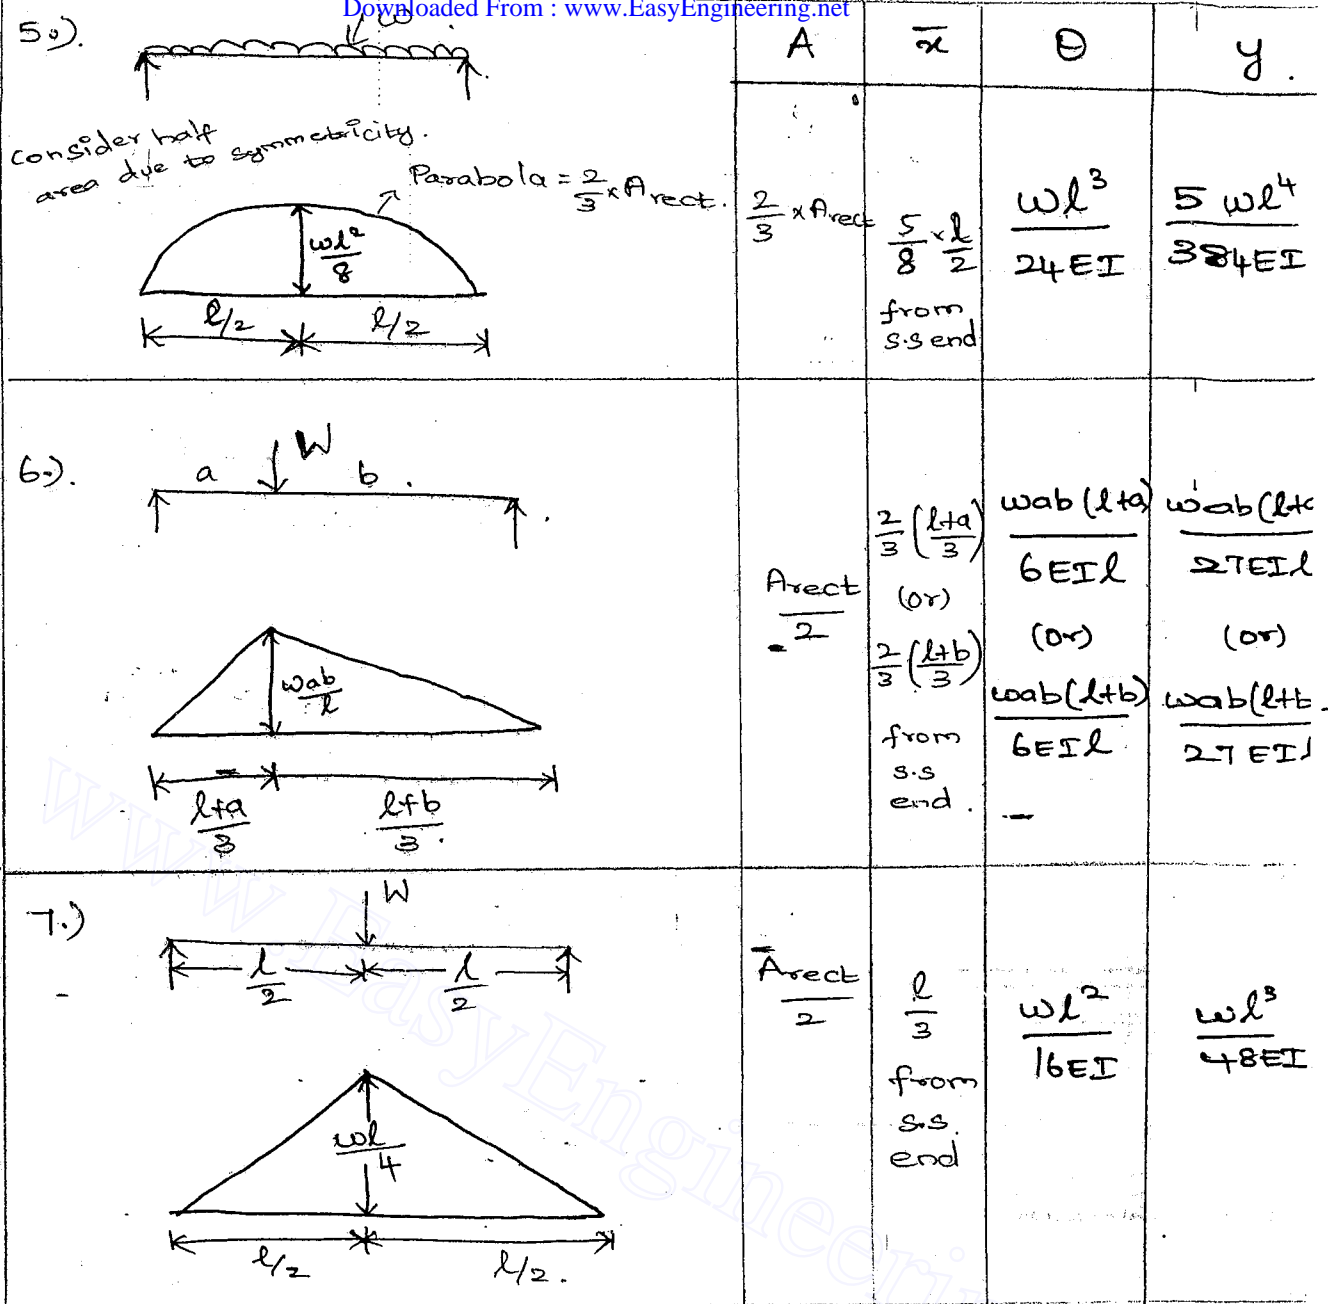 Downloaded From : www.EasyEngineering.net
5.). ω
Consider half
area due to symmetricity.
Parabola = 2/3 × Arect.
ωl²/8
l/2 l/2
A x̄ θ y.
2/3 × Arect
5/8 × l/2
from
s.s end
ωl³/24EI
5 ωl⁴/384EI
6.). a W b.
ωab/l
l+a/3 l+b/3.
Arect/2
2/3 (l+a/3)
(or)
2/3 (l+b/3)
from
s.s
end.
ωab(l+a)/6EIl
(or)
ωab(l+b)/6EIl
ωab(l+
27EIl
(or)
ωab(l+b
27EIl
7.) W
l/2 l/2
ωl/4
l/2 l/2.
Arect/2
l/3
from
s.s.
end
ωl²/16EI
ωl³/48EI
www.EasyEngineeri